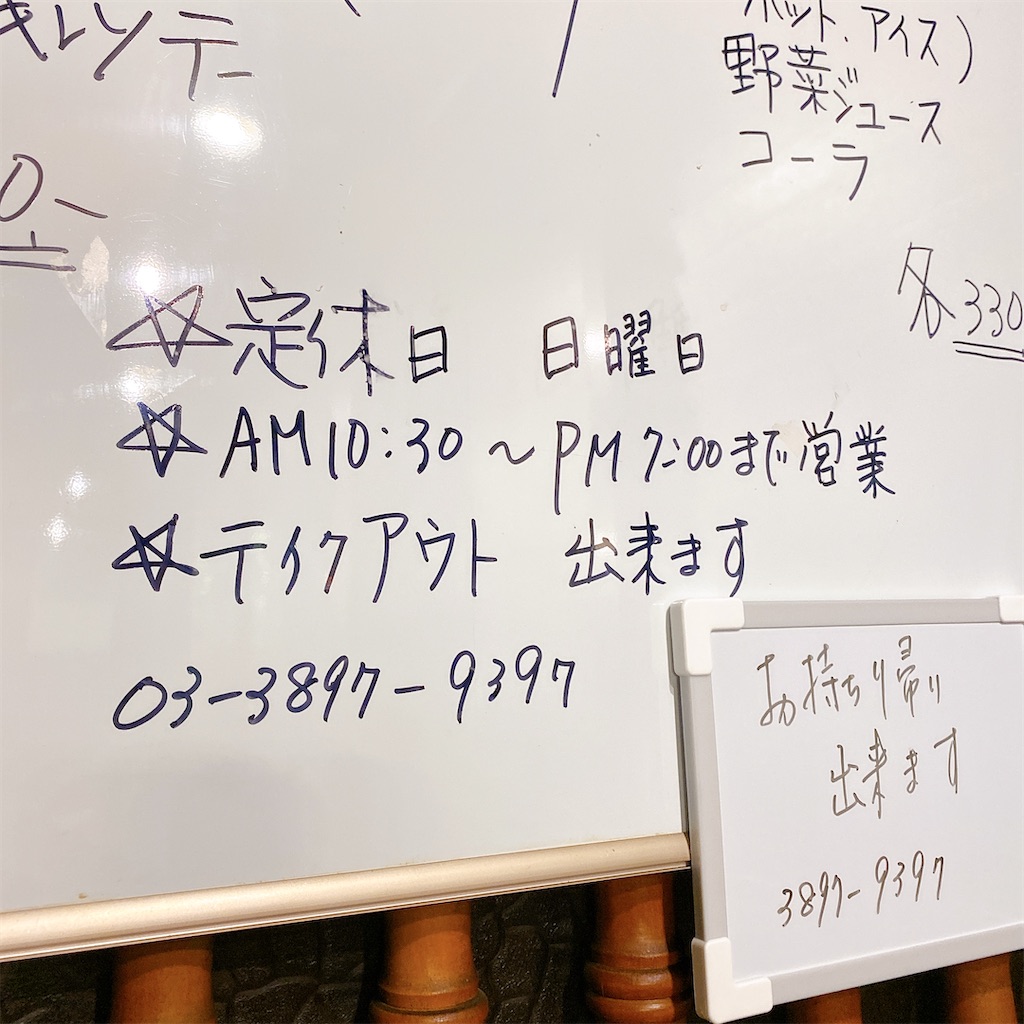 ホット、アイス)
野菜ジュース
コーラ
各330
☆定休日 日曜日
☆AM10:30～PM7:00まで営業
☆テイクアウト 出来ます
03-3897-9397
お持ち帰り
出来ます
3897-9397